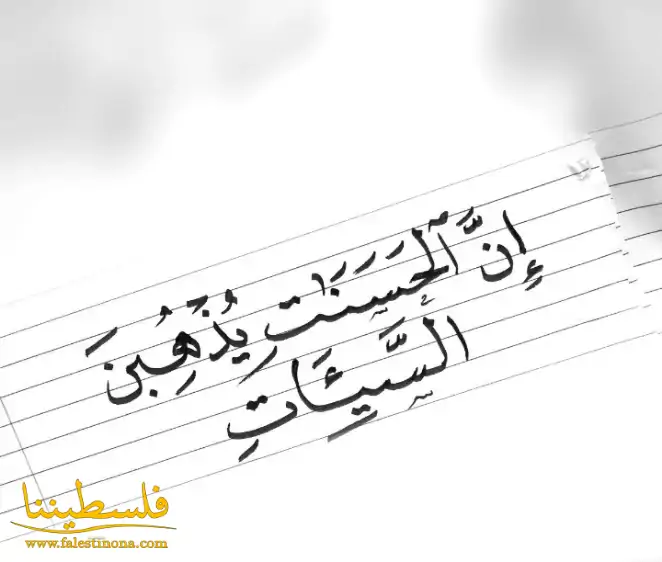 إِنَّ ٱلْحَسَنَٰتِ يُذْهِبْنَ
السَّيِّئَاتِ
فلسطيننا
www.falestinona.com